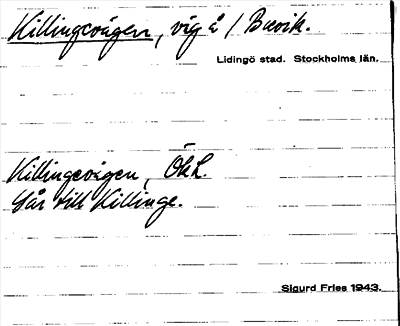 Killingevägen, väg å / Brevik.
Lidingö stad. Stockholms län.
Killingevägen, Ök L.
Går till Killinge.
Sigurd Fries 1943.